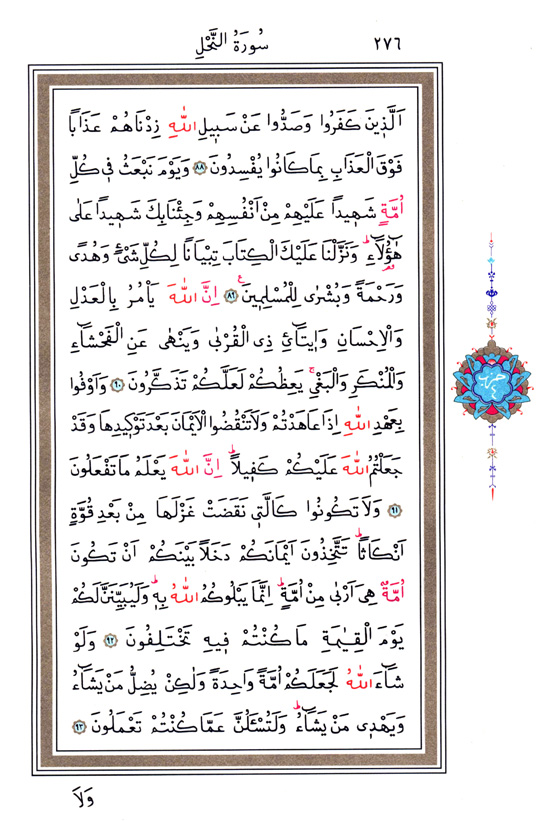 سُورَةُ النَّحْلِ ٢٧٦
اَلَّذ۪ينَ كَفَرُوا وَصَدُّوا عَنْ سَب۪يلِ اللّٰهِ زِدْنَاهُمْ عَذَاباً
فَوْقَ الْعَذَابِ بِمَا كَانُوا يُفْسِدُونَ ﴿٨٨﴾ وَيَوْمَ نَبْعَثُ ف۪ي كُلِّ
اُمَّةٍ شَه۪يداً عَلَيْهِمْ مِنْ اَنْفُسِهِمْ وَجِئْنَا بِكَ شَه۪يداً عَلٰى
هٰٓؤُ۬لَٓاءِۜ وَنَزَّلْنَا عَلَيْكَ الْكِتَابَ تِبْيَاناً لِكُلِّ شَيْءٍ وَهُدًى
وَرَحْمَةً وَبُشْرٰى لِلْمُسْلِم۪ينَ۟ ﴿٨٩﴾ اِنَّ اللّٰهَ يَأْمُرُ بِالْعَدْلِ
وَالْاِحْسَانِ وَا۪يتَٓائِ ذِي الْقُرْبٰى وَيَنْهٰى عَنِ الْفَحْشَٓاءِ
وَالْمُنْكَرِ وَالْبَغْيِۚ يَعِظُكُمْ لَعَلَّكُمْ تَذَكَّرُونَ ﴿٩٠﴾ وَاَوْفُوا
بِعَهْدِ اللّٰهِ اِذَا عَاهَدْتُمْ وَلَا تَنْقُضُوا الْاَيْمَانَ بَعْدَ تَوْك۪يدِهَا وَقَدْ
جَعَلْتُمُ اللّٰهَ عَلَيْكُمْ كَف۪يلاًۜ اِنَّ اللّٰهَ يَعْلَمُ مَا تَفْعَلُونَ
﴿٩١﴾ وَلَا تَكُونُوا كَالَّت۪ي نَقَضَتْ غَزْلَهَا مِنْ بَعْدِ قُوَّةٍ
اَنْكَاثاًۜ تَتَّخِذُونَ اَيْمَانَكُمْ دَخَلاً بَيْنَكُمْ اَنْ تَكُونَ
اُمَّةٌ هِيَ اَرْبٰى مِنْ اُمَّةٍۜ اِنَّمَا يَبْلُوكُمُ اللّٰهُ بِه۪ۜ وَلَيُبَيِّنَنَّ لَكُمْ
يَوْمَ الْقِيٰمَةِ مَا كُنْتُمْ ف۪يهِ تَخْتَلِفُونَ ﴿٩٢﴾ وَلَوْ
شَٓاءَ اللّٰهُ لَجَعَلَكُمْ اُمَّةً وَاحِدَةً وَلٰكِنْ يُضِلُّ مَنْ يَشَٓاءُ
وَيَهْد۪ي مَنْ يَشَٓاءُۜ وَلَتُسْـَٔلُنَّ عَمَّا كُنْتُمْ تَعْمَلُونَ ﴿٩٣﴾
وَلَا